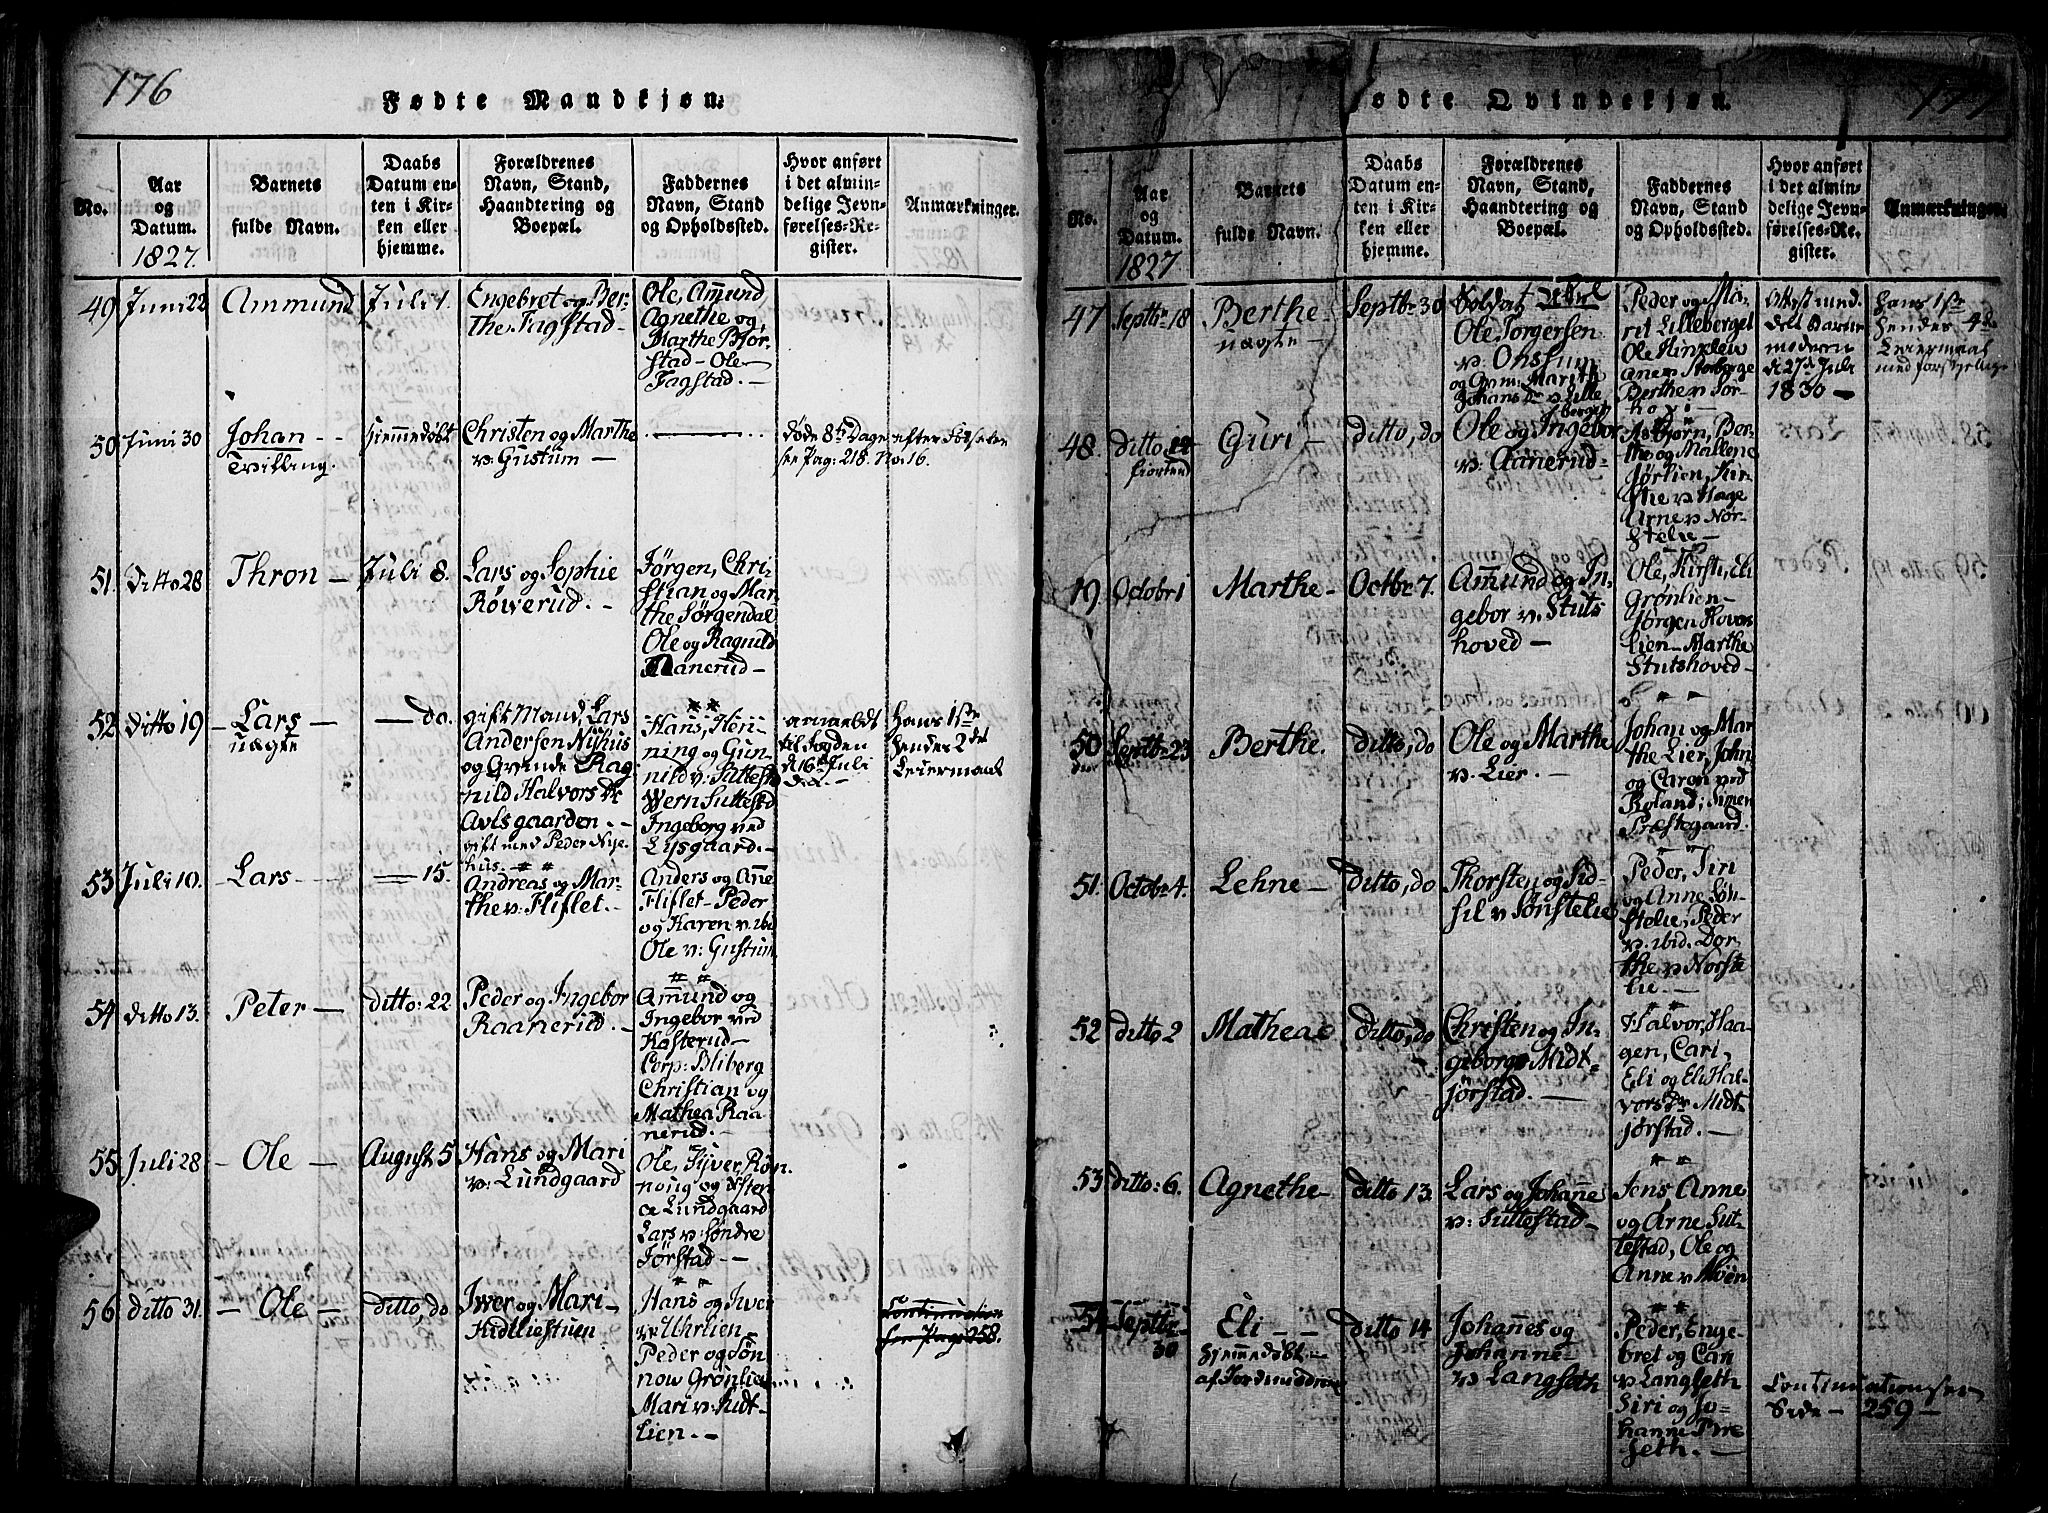 176
Fødte Mandkjøn.
No.
Aar
og
Datum.
1827.
Barnets
fulde Navn.
Daabs
Datum en-
ten i Kir-
ken eller
hjemme.
Forældrenes
Navn, Stand,
Haandtering og
Boepæl.
Faddernes
Navn, Stand
og Opholdssted.
Hvor anført
i det almin-
delige Jevn-
førelses-Re-
gister.
Anmærkninger.
49 Juni 22
Ammund
Juli 1.
Engebret og Ber-
the Fagstad-
Ole, Amund
Agnethe og
Marthe Bjør-
stad- Ole
Fagstad.-
50 Juni 30
Johan --
Tvilling.
hjemmedøbt
Christen og Marthe
v: Gustum -
døde 8te Dage
see Pag: 218. No. 16.
efter Fødselen
51. Ditto 28
Thron -
Juli 8.
Lars og Sophie
Røiverud. -
Jørgen, Chri-
stian og Mar-
the Sørgendal
Ole og Ragnild
Aanerud-
52 Ditto 19
- Lars -
uægte
- do.
gift Mand, Lars
Andersen Nyhus
og Qvinde Rag
nild Halvors Dr
Avlsgaarden. -
gift med Peder Nye-
hus. -
Hans, Hen-
ning og Gun-
nild v: Suttestd
Wern Suttestd
Ingeborg ved
Lysgaard. -
anmeldt
til Fogden
d 16de Juli
Hans 1ste
hendes 2det
Leiermaal
53 Juli 10.
- Lars -
- 15.
Andreas og Mar-
the v: Fliflet. -
Anders og Ane
Fliflet- Peder
og Karen v. ibid
Ole v: Gustum
54 ditto 13.
Peter -
ditto: 22.
Peder og Ingebor
Raanerud. -
Amund og
Ingebor ved
Kosterud-
Corp: Bliberg
Christian og
Mathea Raa-
nerud. -
55 Juli 28
- Ole -
August 5
Hans og Mari
v: Lundgaard
Ole, Syver Røn
noug og
Lundgaard
Lars v: Søndre
Jørstad -
56 ditto 31.
- Ole -
ditto, do
Iwer og Mari -
Kidtliestuen
Hans og Iver
v: Uhrlien
Peder og Søn
now Grønlien
Mari v: Kidt-
lien. -
Continuation
see Pag. 258.
177
Fødte Qvindekjøn.
No.
Aar
og
Datum.
1827
Barnets
fulde Navn.
Daabs
Datum en-
ten i Kir-
ken eller
hjemme.
Forældrenes
Navn, Stand,
Haandtering og
Boepæl.
Faddernes
Navn, Stand
og Opholdssted.
Hvor anført
i det almin-
delige Jevn-
førelses-Re-
gister.
Anmærkninger.
47 Septbr 18
Berthe -
uægte -
Septbr 30
Soldat
Ole Torgersen
v: Onstum
Marith
Johans Dr v: Lille
berget
Peder og Ma-
rit Lilleberget
Ole
Storberget
Berthe v
Attest med-
delt Barne-
moderen
d 27de Juli
1830 -
Hans 1ste
hendes 4de
Leiermaal
48. ditto 14
fiorten
Guri -
ditto, do
Ole og Ingebor
v: Aanerud-
Asbjørn, Ber-
the og Mallene
Jørlien, Kir-
stie v: Hage
Arne v: Nør-
stelie -
19. Octobr 1
Marthe -
Octbr 7.
Amund og In-
gebor v: Stuts
hoved -
Ole, Kirsti, Eli
Grønlien-
Jørgen Hovos
lien- Marthe
Stutshoved-
50 Septbr 23
Berthe.
ditto, do
Ole og Marthe
v: Lier. -
Johan og Mar-
the Lier, John
og Caren ved
Roland; Simen
Præstegaard.
51. Octobr 4.
Lehne -
ditto, do
Thorsten og Sid-
sil v: Sønstelie
Peder, Siri
og Anne Søn-
stelie, Peder
v: ibid. Dor-
the v: Norste
lie. -
52 ditto 2
Mathea
ditto, do
Christen og In-
geborg v: Midt-
jørstad. -
Halvor, Haa-
gen, Cari,
Eli og Eli Hal-
vors Dr Midt-
jørstad. -
53 ditto: 6.
Agnethe -
ditto 13.
Lars og Johanne
v: Suttestad-
Jens, Anne
og Arne Sut-
testad, Ole og
Anne v: Moen
54 Septbr
30
Eli - -
hjemmedøbt -
af Jordmoderen
ditto 14
Johannes og
Johanne -
v: Langseth
Peder, Enge-
bret og Cari
v: Langseth
Siri og Jo-
hanne Bræ-
seth. -
Continuationsen
Side - 259 -